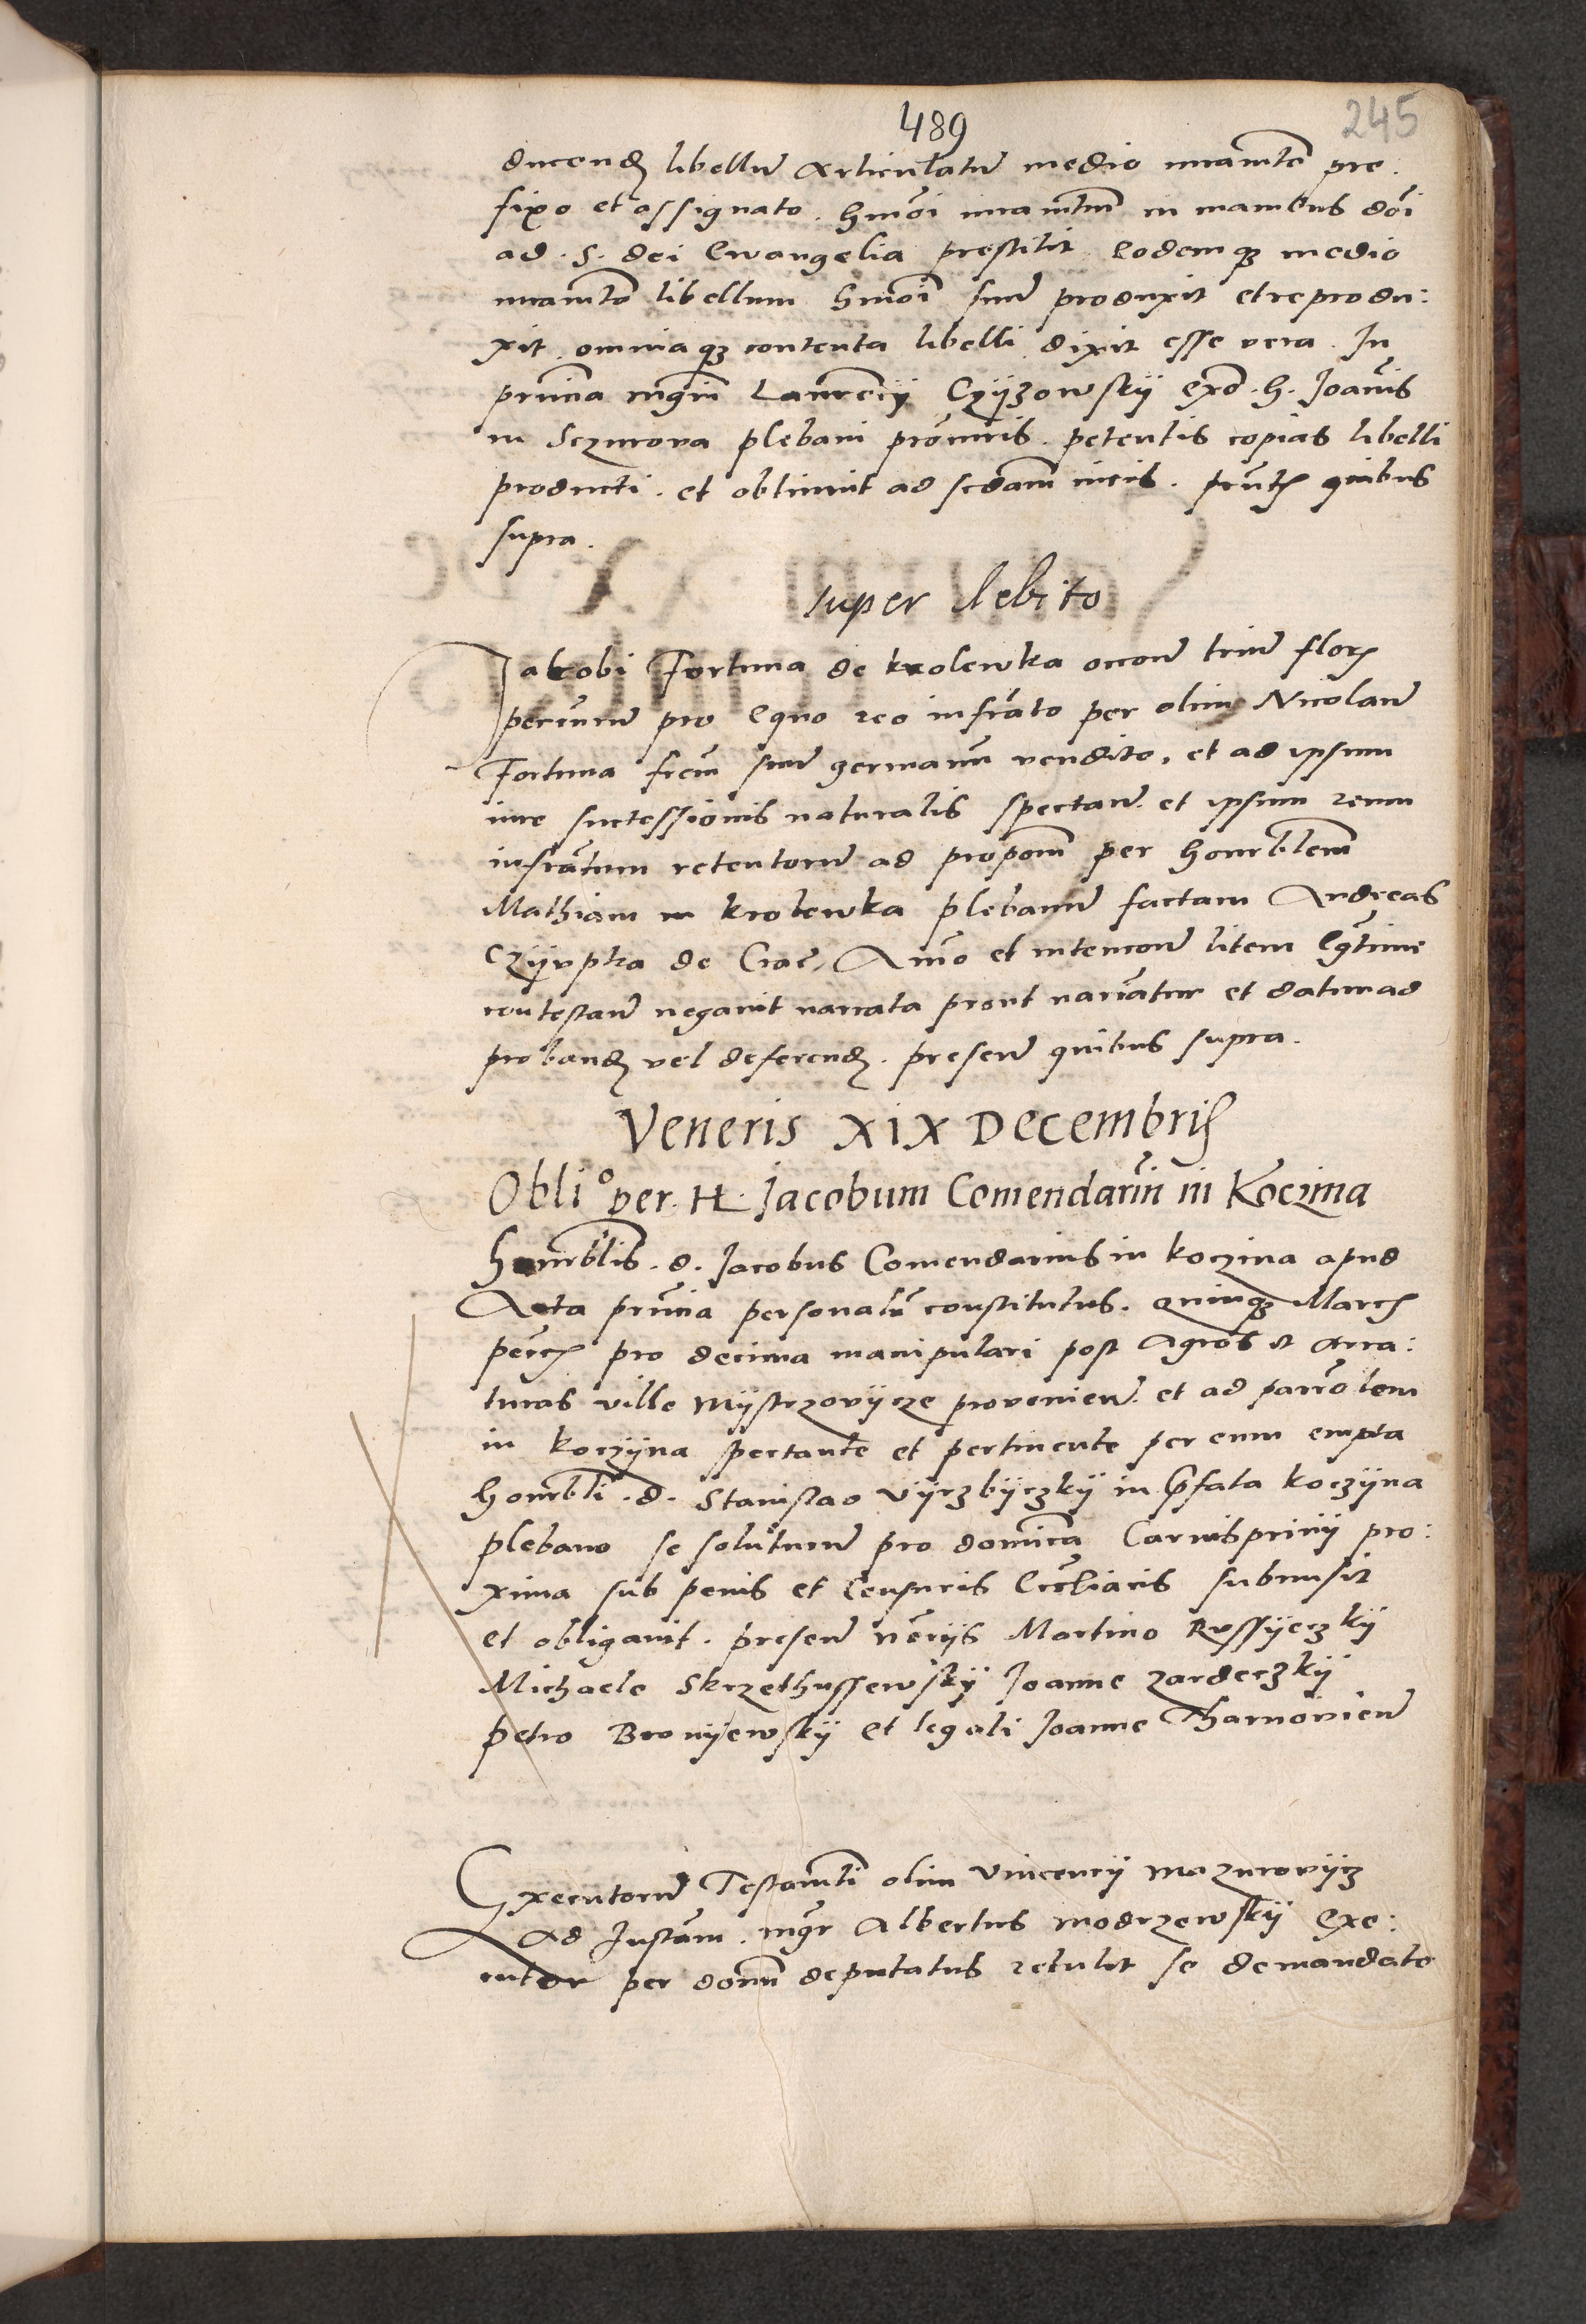 489
245
ducend libellū Articulatū medio iuramto pre
fixo et assignato. hmōi iuramtm in manibus dōi
ad. S. dei Ewangelia prestitit Eodemq3 medio
iuramto libellum hmōi suū produxit et reprodu:
xit. omniaq3 contenta libelli dixit esse vera. In
pn̄cia mgr̄i Laurēcij Czijzowskij exō. h. Joan̄is
in Sczurova plebani procuris. petentis copias libelli
producti. et obtinuit ad scdam iuris. pn̄tƺ quibus
supra.
super debito
Jacobi Fortuna de krolewka occonē triū florƺ
per eum pro Equo reo infrāto per olim Nicolaū
Fortuna frēm suū germanū vendito, et ad ipsum
iure successionis naturalis spectanē. et ipsum reum
infrātum retentorū ad propoēm per honorblēm
Mathiam in krolewka plebanū factam Andreas
Czijrpka de Crac̄, Aīo et intenconē litem Legtime
contestanē negavit narrata prout narrātur et datur ad
proband vel deferend. presenē quibus supra.
Veneris XIX Decembriƺ
Obli⁰ per. H. Jacobum Comendariū in Koczina
honorblis. d. Jacobus Comendarius in koczina apud
Acta pn̄cia personalr̄ constitutus. quinq3 Marcƺ
pec̄ƺ pro decima manipulari post Agros et Arra:
turas ville Mijstrzovijcze provenienē. et ad parrōlem
in koczijna spectante et pertinente per eum empta
honorbli. d. Stanislao Vijrzbijczkij in p̄fata koczijna
plebano se soluturū pro domīca Carnisprivij pro:
xima sub penis et Censuris Ecc̄liacis submisit
et obligavit. presenē nērijs Martino Russijeczkij
Michaele Skrzethussewskij Joanne zardeczkij
petro Bronijewskij et legali Joanne Tharnovienē
Executorū Testamti olim Vincencij Mazurovijcz
Ad Instām. mgr Albertus modrzewskij exe:
cutor per donū deputatus retulit se de mandato